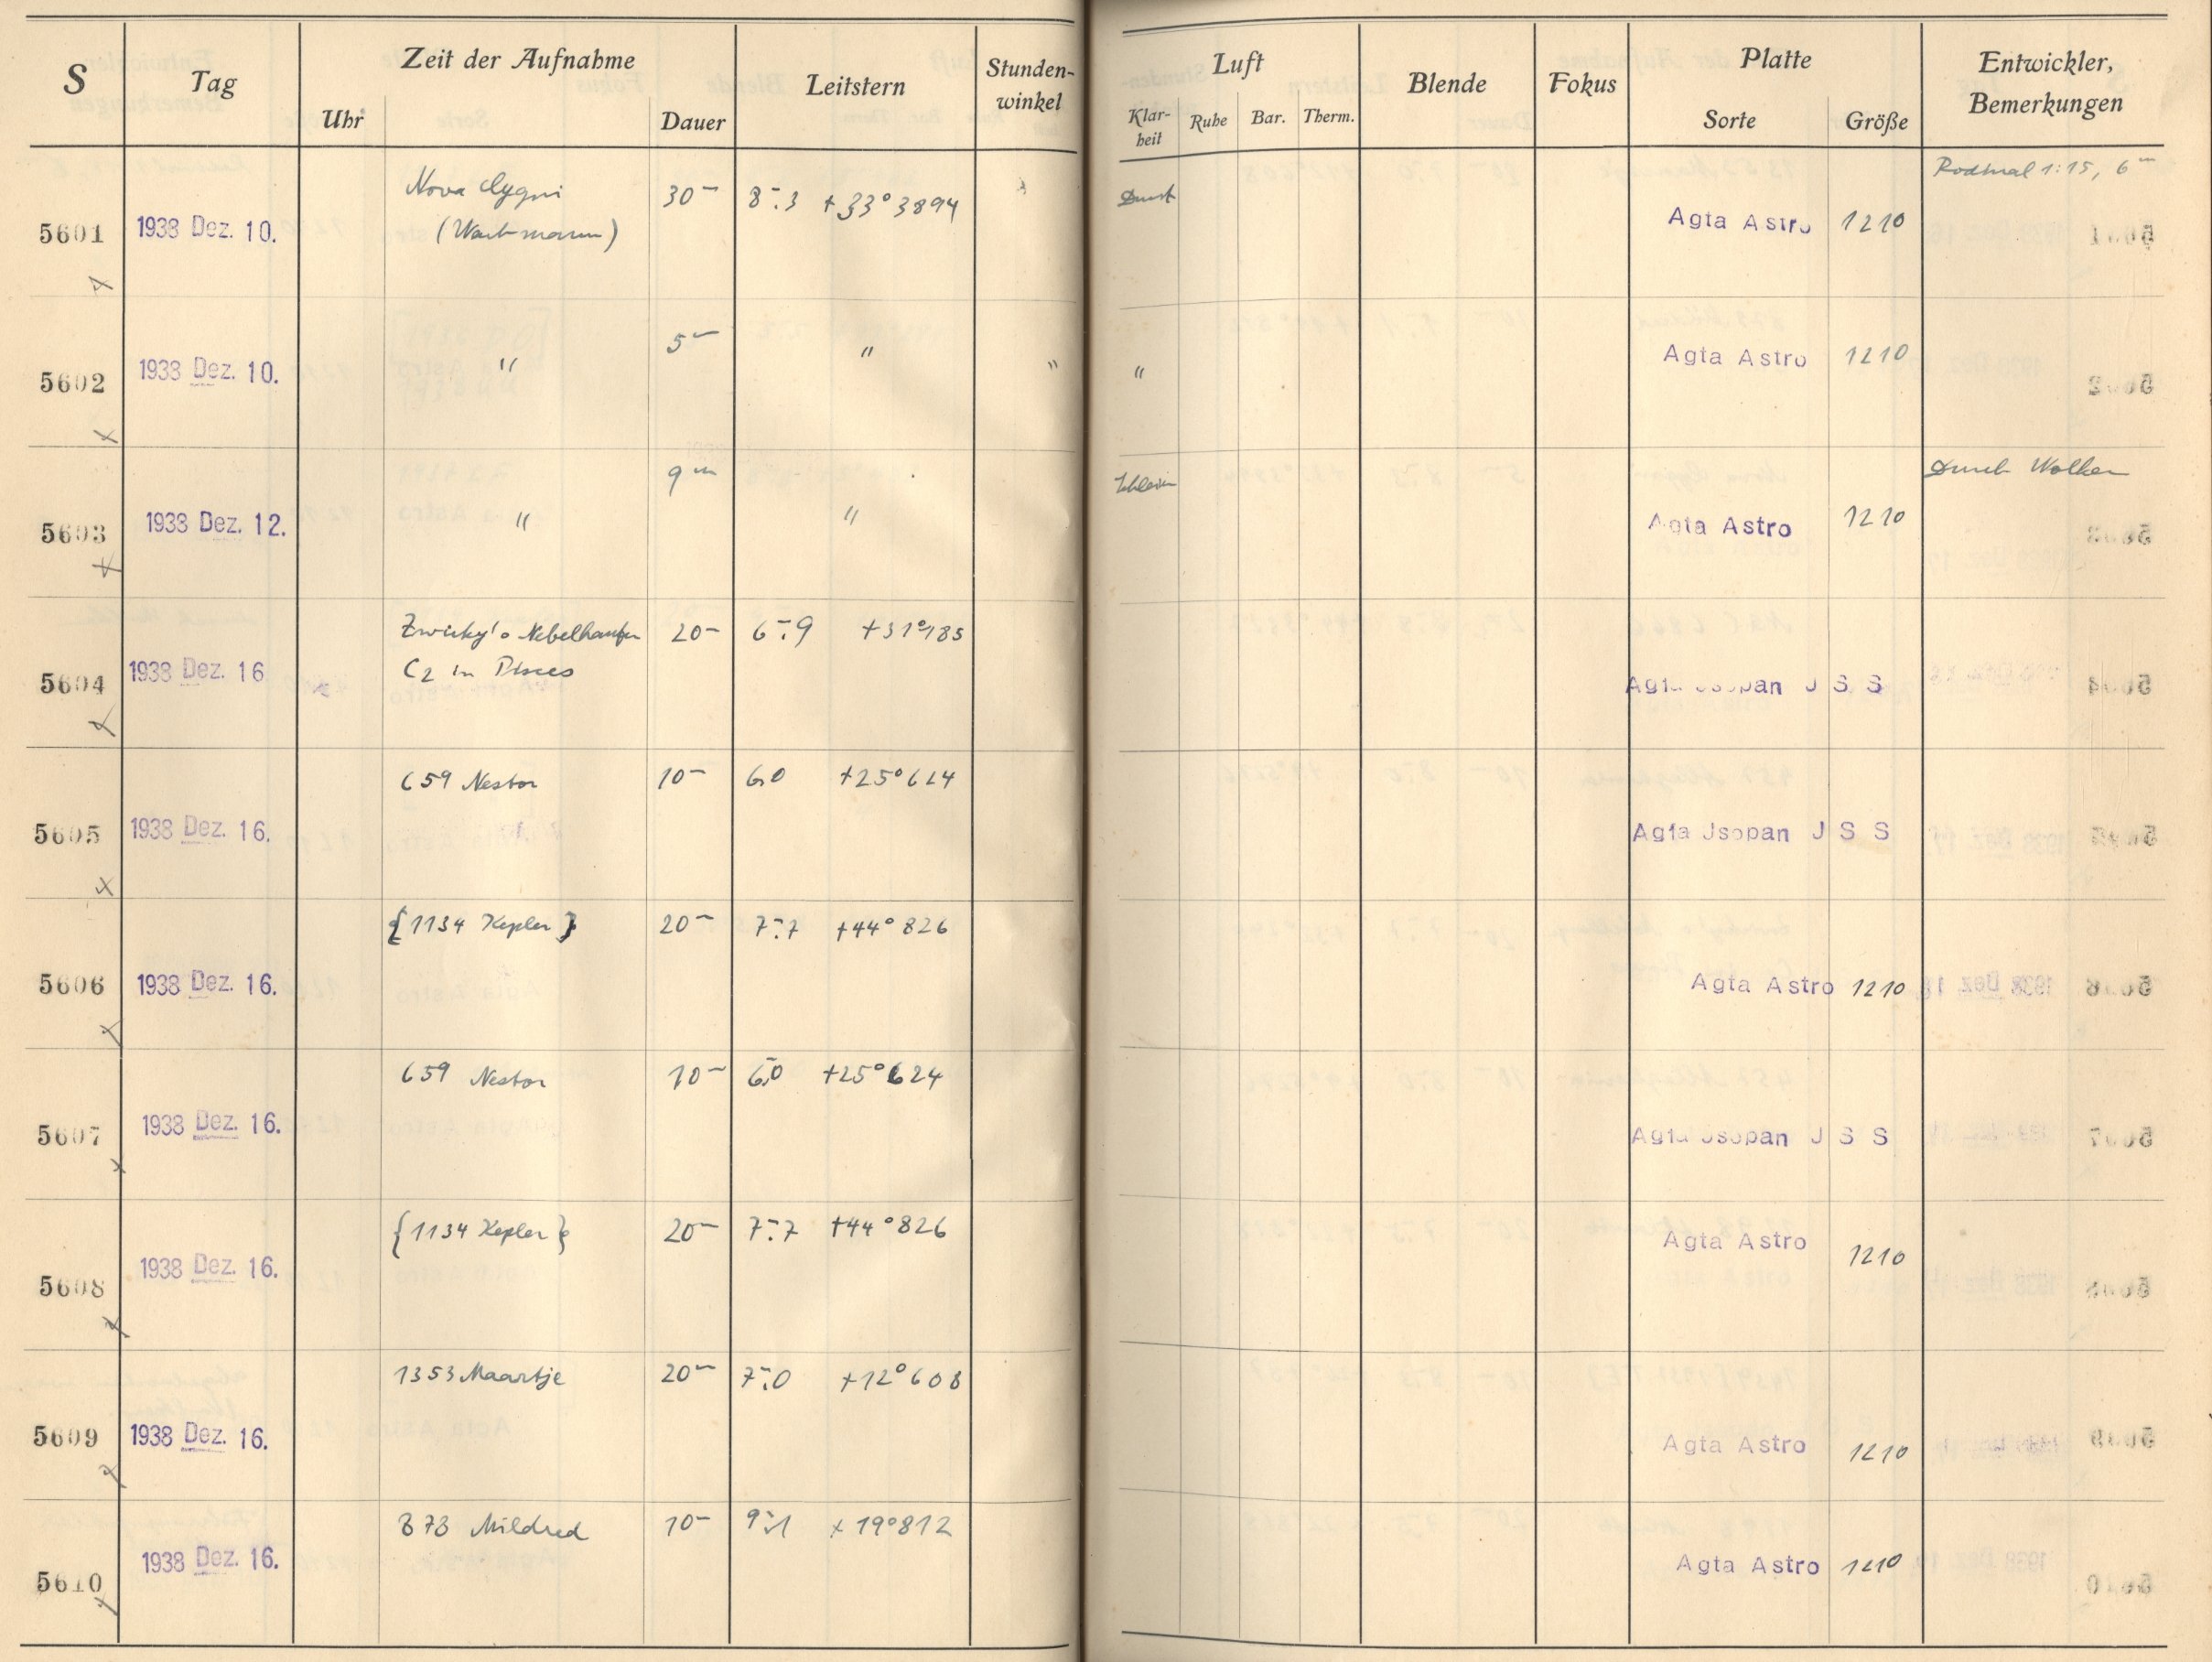 S Tag Zeit der Aufnahme Leitstern Stunden-winkel Luft Blende Fokus Platte Entwickler, Bemerkungen
Uhr Dauer Klar-heit Ruhe Bar. Therm. Sorte Größe
Rodinal 1:15, 6m
5601 1938 Dez. 10. Nova Cygni 30m 8m.3 +33°3894 Dunst Agfa Astro 1210
(Wachmann)
5602 1938 Dez. 10. " 5m " " " Agfa Astro 1210
5603 1938 Dez. 12. " 9m " Schleier Agfa Astro 1210 Durch Wolken
5604 1938 Dez. 16 Zwicky's Nebelhaufen 20m 6m.9 +31°185 Agfa Jsopan J S S
C2 in Pisces
5605 1938 Dez. 16. 659 Nestor 10m 6.0 +25°624 Agfa Jsopan J S S
5606 1938 Dez. 16. {1134 Kepler} 20m 7m.7 +44°826 Agfa Astro 1210
5607 1938 Dez. 16. 659 Nestor 10m 6m.0 +25°624 Agfa Jsopan J S S
5608 1938 Dez. 16. {1134 Kepler} 20m 7m.7 +44°826 Agfa Astro 1210
5609 1938 Dez. 16. 1353 Maartje 20m 7m.0 +12°608 Agfa Astro 1210
5610 1938 Dez. 16. 878 Mildred 10m 9m.1 +19°812 Agfa Astro 1210